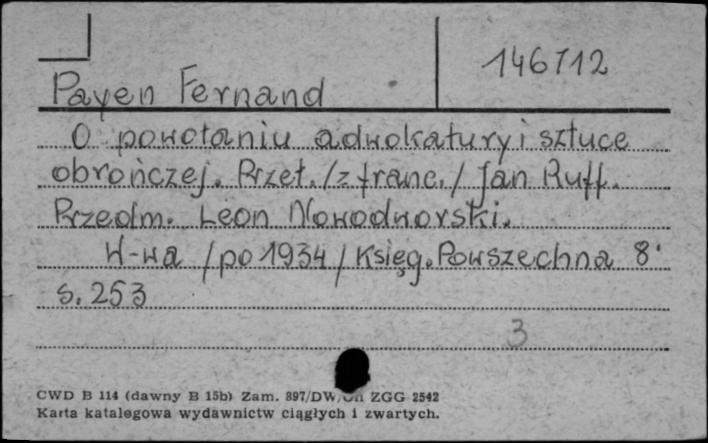 146712
Payen Fernand
O powołaniu adwokatury i sztuce
obrończej. Przeł. /z franc./ Jan Ruff.
Przedm. Leon Nowodworski.
W-wa /po 1934/ Księg. Powszechna 8°
s. 253
3
CWD B 114 (dawny B 15b) Zam. 897/DW/ ZGG 2542
Karta katalogowa wydawnictw ciągłych i zwartych.